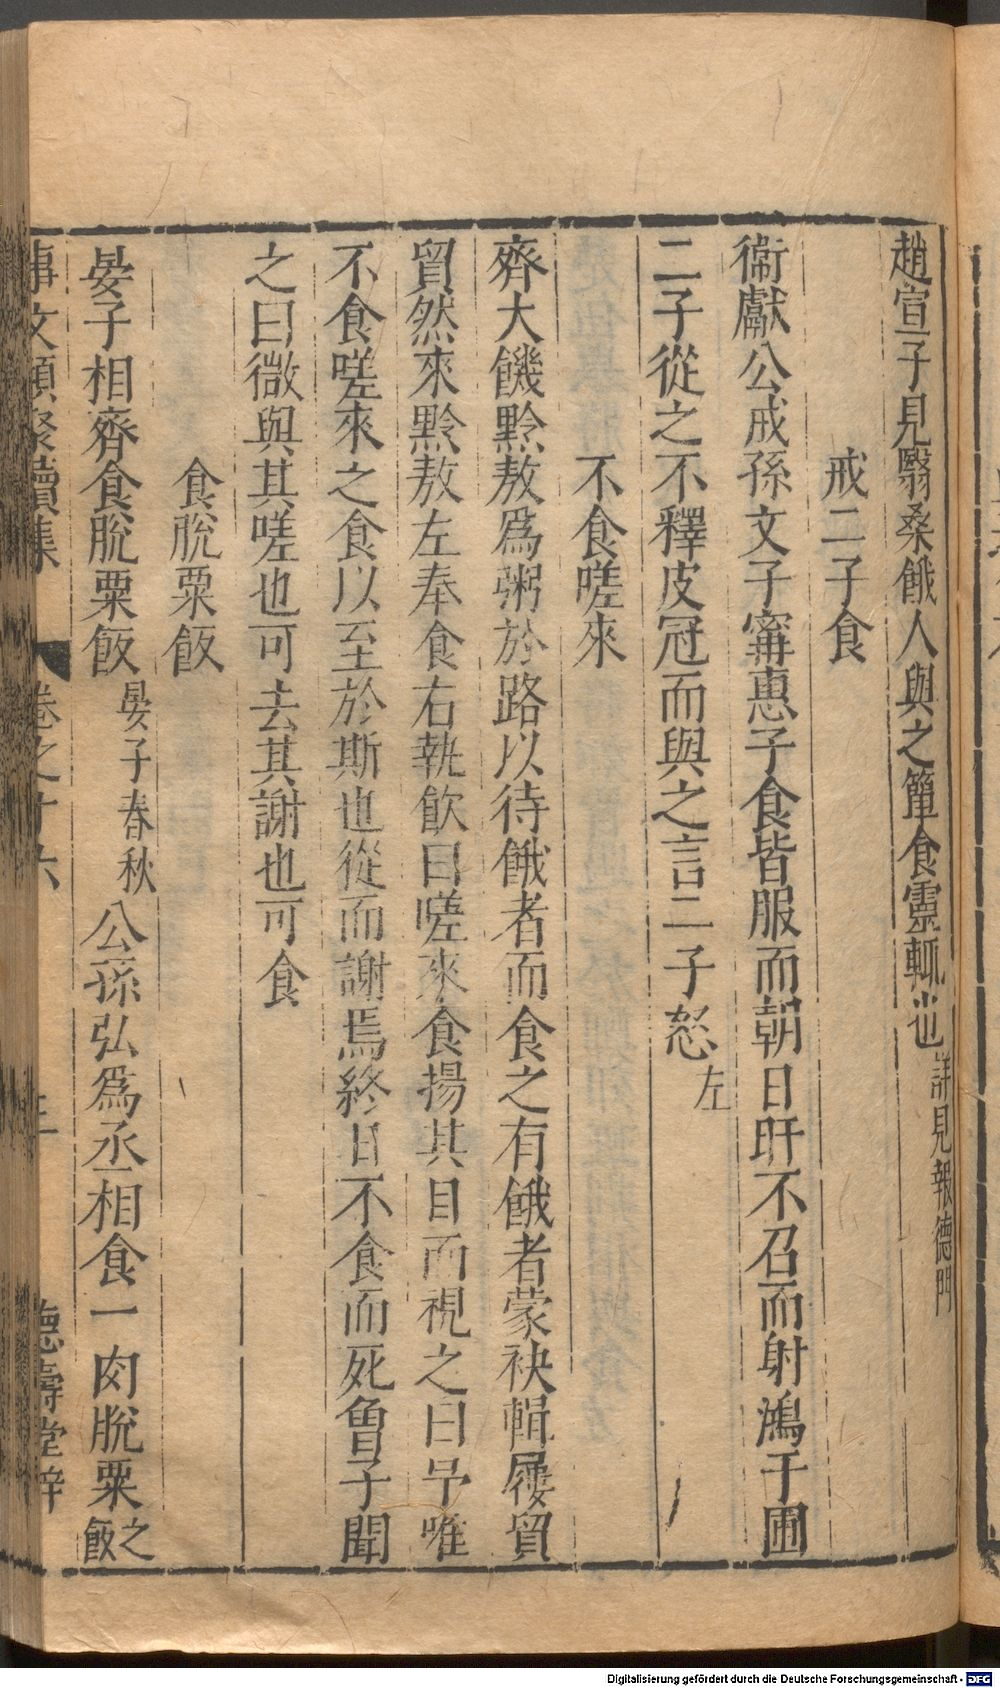 趙宣子見翳桑餓人與之簞食靈輒也詳見報德門
戒二子食
衞獻公戒孫文子甯惠子食皆服而朝日旰不召而射鴻于囿
二子從之不釋皮冠而與之言二子怒左
不食嗟來
齊大饑黔敖爲粥於路以待餓者而食之有餓者蒙袂輯屨貿
貿然來黔敖左奉食右執飲曰嗟來食揚其目而視之曰予唯
不食嗟來之食以至於斯也從而謝焉終日不食而死魯子聞
之曰微與其嗟也可去其謝也可食
食脫粟飯
晏子相齊食脫粟飯晏子春秋公孫弘爲丞相食一肉脫粟之飯
事文類聚續集 卷之十六 德壽堂梓
Digitalisierung gefördert durch die Deutsche Forschungsgemeinschaft - DFG